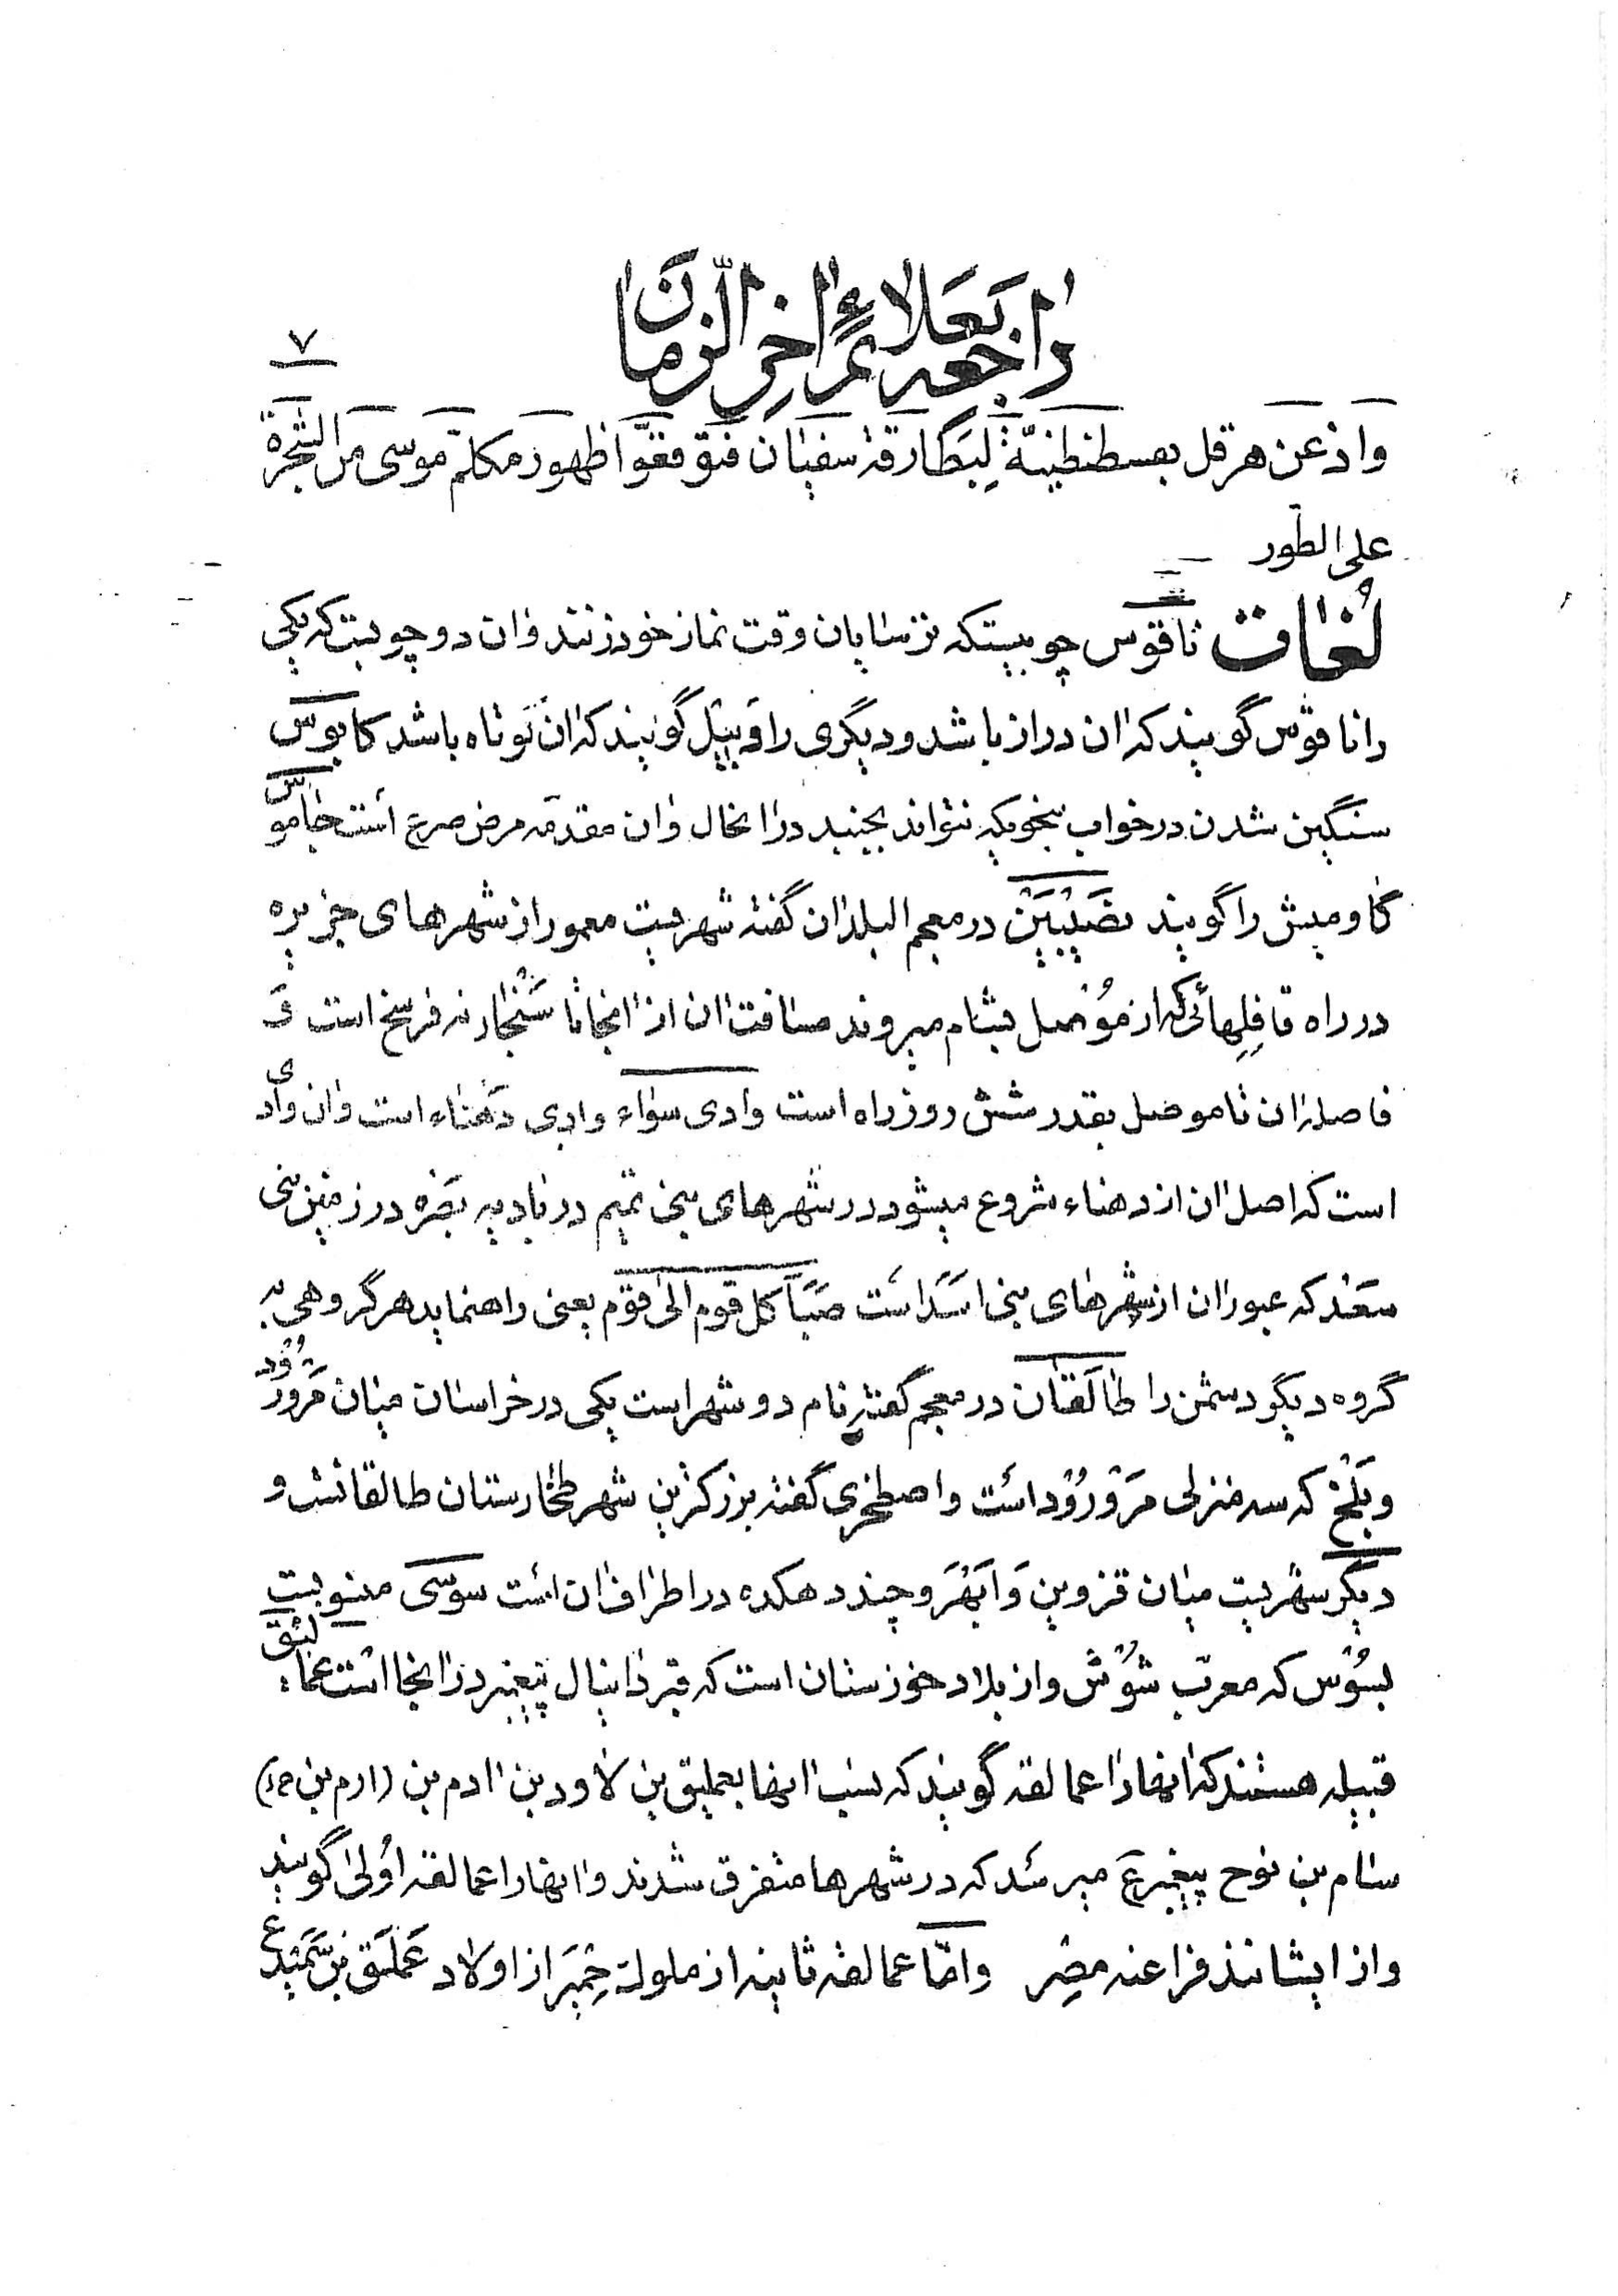 راجعه بعلائم اخر الزمان
۷
واذعن هرقل بقسطنطنیّة لبطارقة سفیان فتوقعوا ظهور مکلم موسی من الشجرة
علی الطور
لغات ناقوس چوبیستکه ترسایان وقت نماز خود زنند و ان دو چوبیست که یکی
را ناقوس گویند که ان دراز باشد و دیگری را وبیل گویند که ان کوتاه باشد کابوس
سنگین شدن در خواب بنحویکه نتواند بجنبد در انحال و ان مقدمه مرض صرع است جاموس
گاومیش را گویند نصیبین در معجم البلدان گفته شهریست معمور از شهرهای جزیره
در راه قافلهائی که از موصل بشام میروند مسافت ان از انجا تا سنجار نه فرسخ است و
فاصله ان تا موصل بقدر شش روز راه است وادی سواء وادی دهناء است و ان وادی
است که اصل ان از دهناء شروع میشود در شهرهای بنی تمیم در بادیه بصره در زمین بنی
سعد که عبور ان از شهرهای بنی اسد است صبا کل قوم الی قوم یعنی راهنماید هر گروهی به
گروه دیگر دشمن را طالقان در معجم گفته نام دو شهر است یکی در خراسان میان مرورود
و بلخ که سه منزلی مرورود است و اصطخری گفته بزرکترین شهر طخارستان طالقانست و
دیگر شهریست میان قزوین و ابهر و چند دهکده در اطراف ان است سوسی منسوبست
بسوس که معرّب شوش و از بلاد خوزستان است که قبر دانیال پیغمبر در انجا است عمالیق
قبیله هستند که انها را عمالقه گویند که نسب انها بعملیق بن لاود بن ادم بن (ارم بن خ)
سام بن نوح پیغمبر ع میرسد که در شهرها متفرق شدند و انها را عمالقه اولی گویند
و از ایشانند فراعنه مصر و امّا عمالقه ثانیه از ملوک حمیر از اولاد عملق بن سمیدع